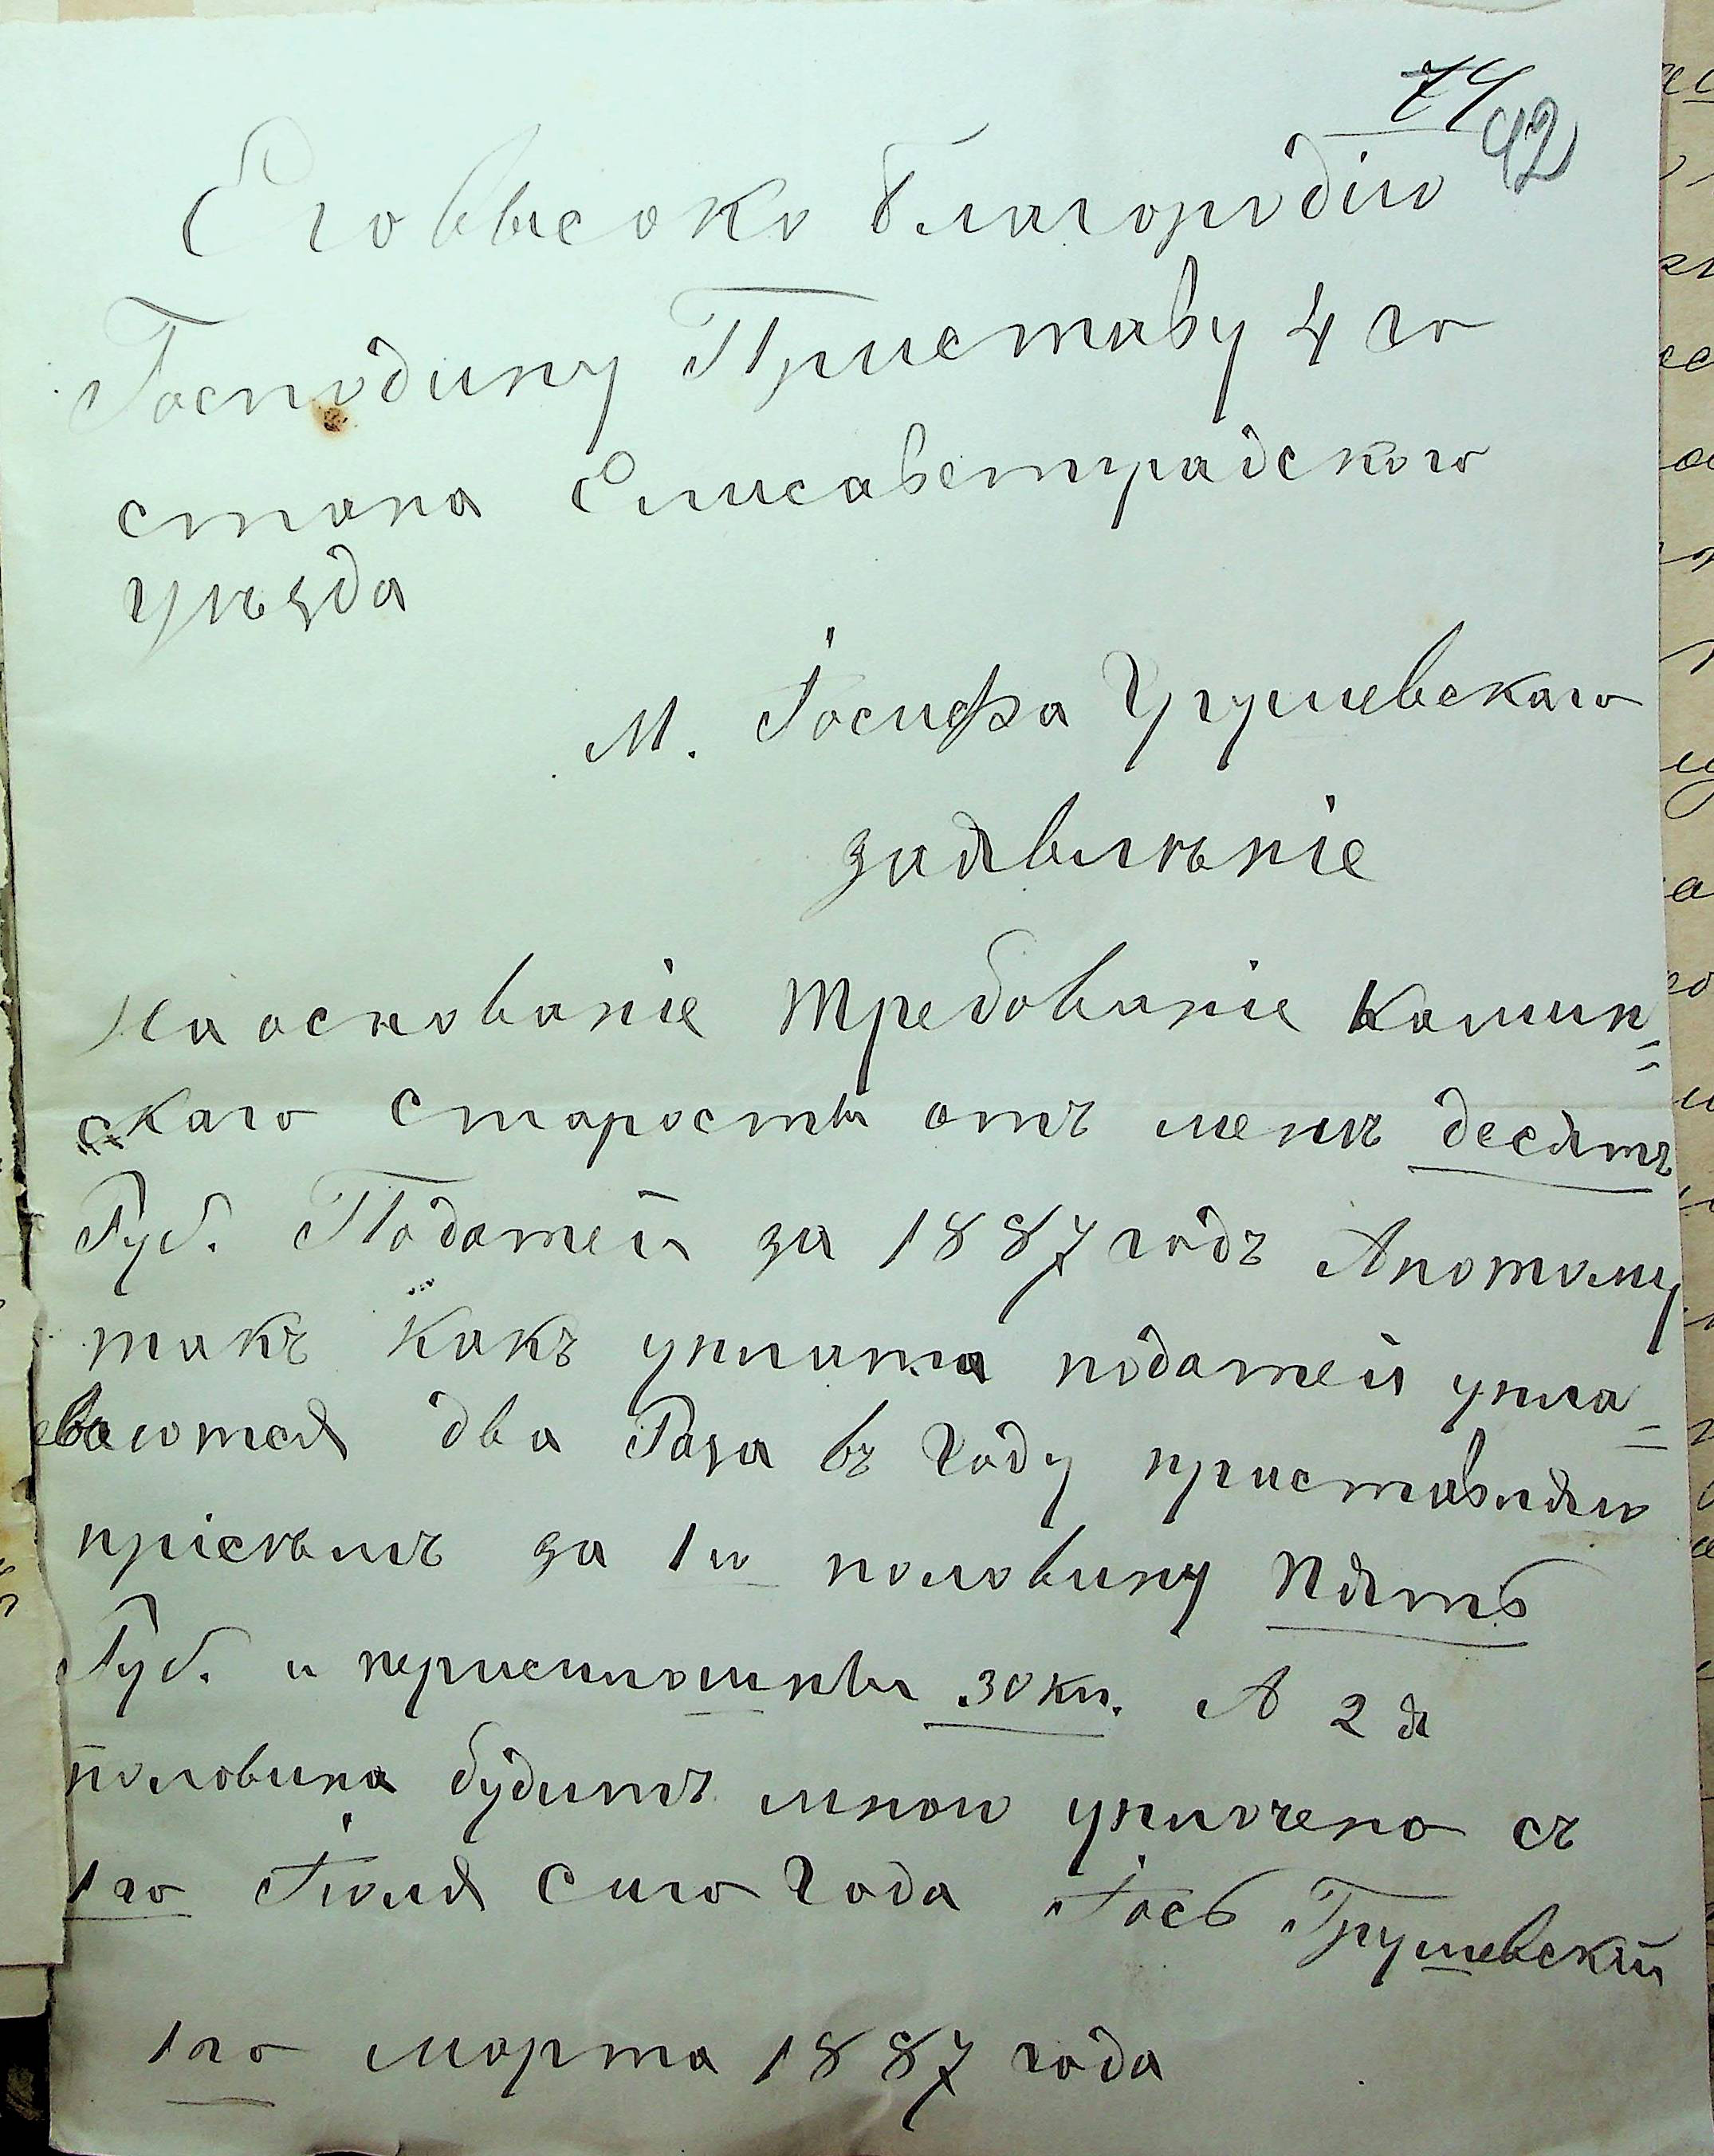 74
92
Его высоко Благородію
Господину Приставу 4 го
стана Елисаветградского
уѣзда
М. Іосифа Грушевскаго
заявлѣніе
На основаніе Требованіе Камин=
скаго старосты отъ менѣ десятъ
Руб. Податей за 1887 годъ Апотому
такъ какъ уплата податей упла=
ваются два Раза въ Году приставляю
прісѣмъ за 1ю половину пять
Руб. и перисилошны 30 кп. А 2 я
половина будитъ мною уплочено съ
1 го Іюля Сиго Года Іось Грушевскій
1 го марта 1887 года